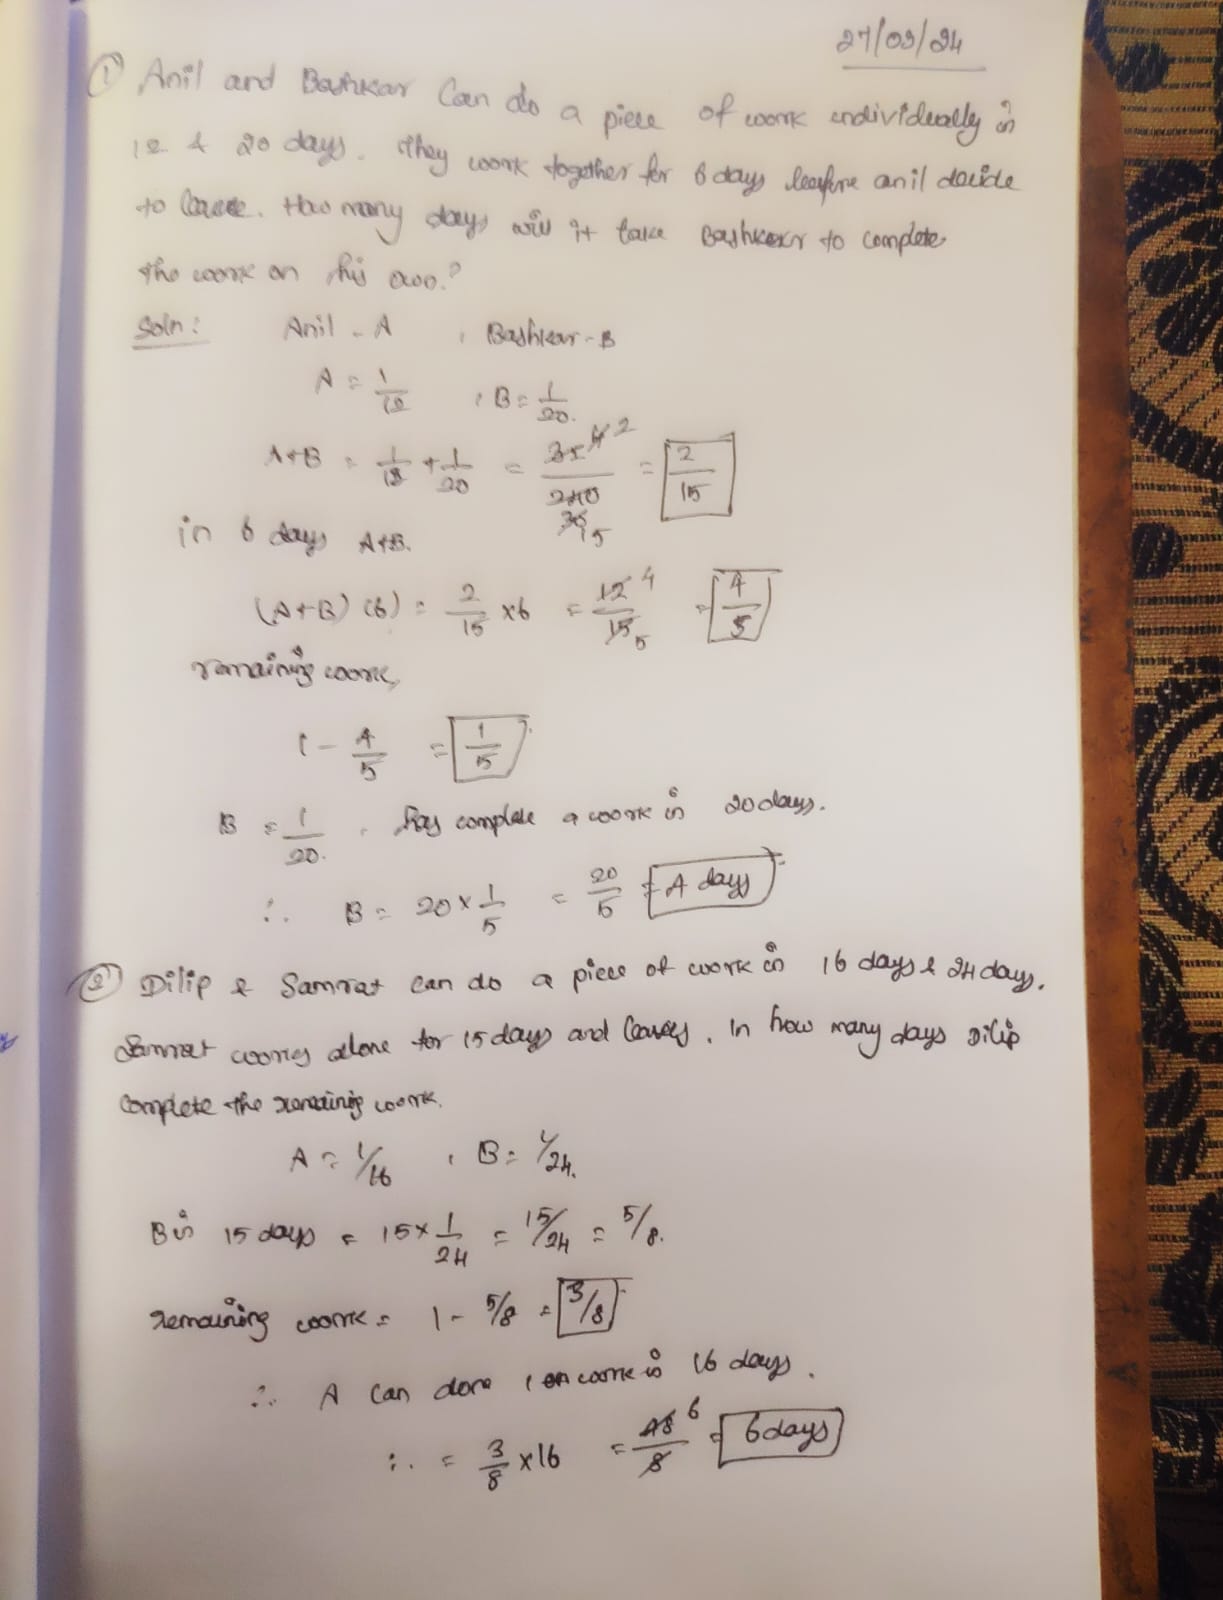 27/09/24
① Anil and Bashkar Can do a piece of work individually in
12 & 20 days. They work together for 6 days before anil decide
to leave. How many days will it take Bashkar to complete
the work on his own?
Soln: Anil - A , Bashkar - B
A = 1/12 , B = 1/20.
A+B = 1/12 + 1/20 = = 2/15
in 6 days A+B.
(A+B) (6) = 2/15 x6 = 12/15 = 4/5
remaining work,
1 - 4/5 = 1/5
B = 1/20. , has complete a work in 20 days.
∴ B = 20 x 1/5 = 20/5 = 4 days
② Dilip & Samrat can do a piece of work in 16 days & 24 days.
Samrat works alone for 15 days and leaves. In how many days Dilip
complete the remaining work.
A = 1/16 , B = 1/24.
B in 15 days = 15 x 1/24 = 15/24 = 5/8.
remaining work = 1 - 5/8 = 3/8
∴ A can done 1 work in 16 days.
∴ = 3/8 x 16 = 48/8 6 = 6 days